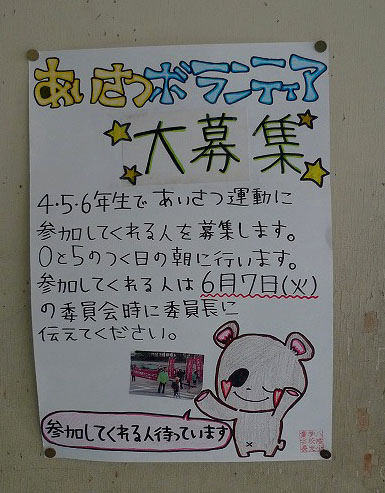 あいさつボランティア
大募集
4・5・6年生で あいさつ運動に
参加してくれる人を募集します。
0と5のつく日の朝に行います。
参加してくれる人は6月7日(火)
の委員会時に委員長に
伝えてください。
参加してくれる人待っています